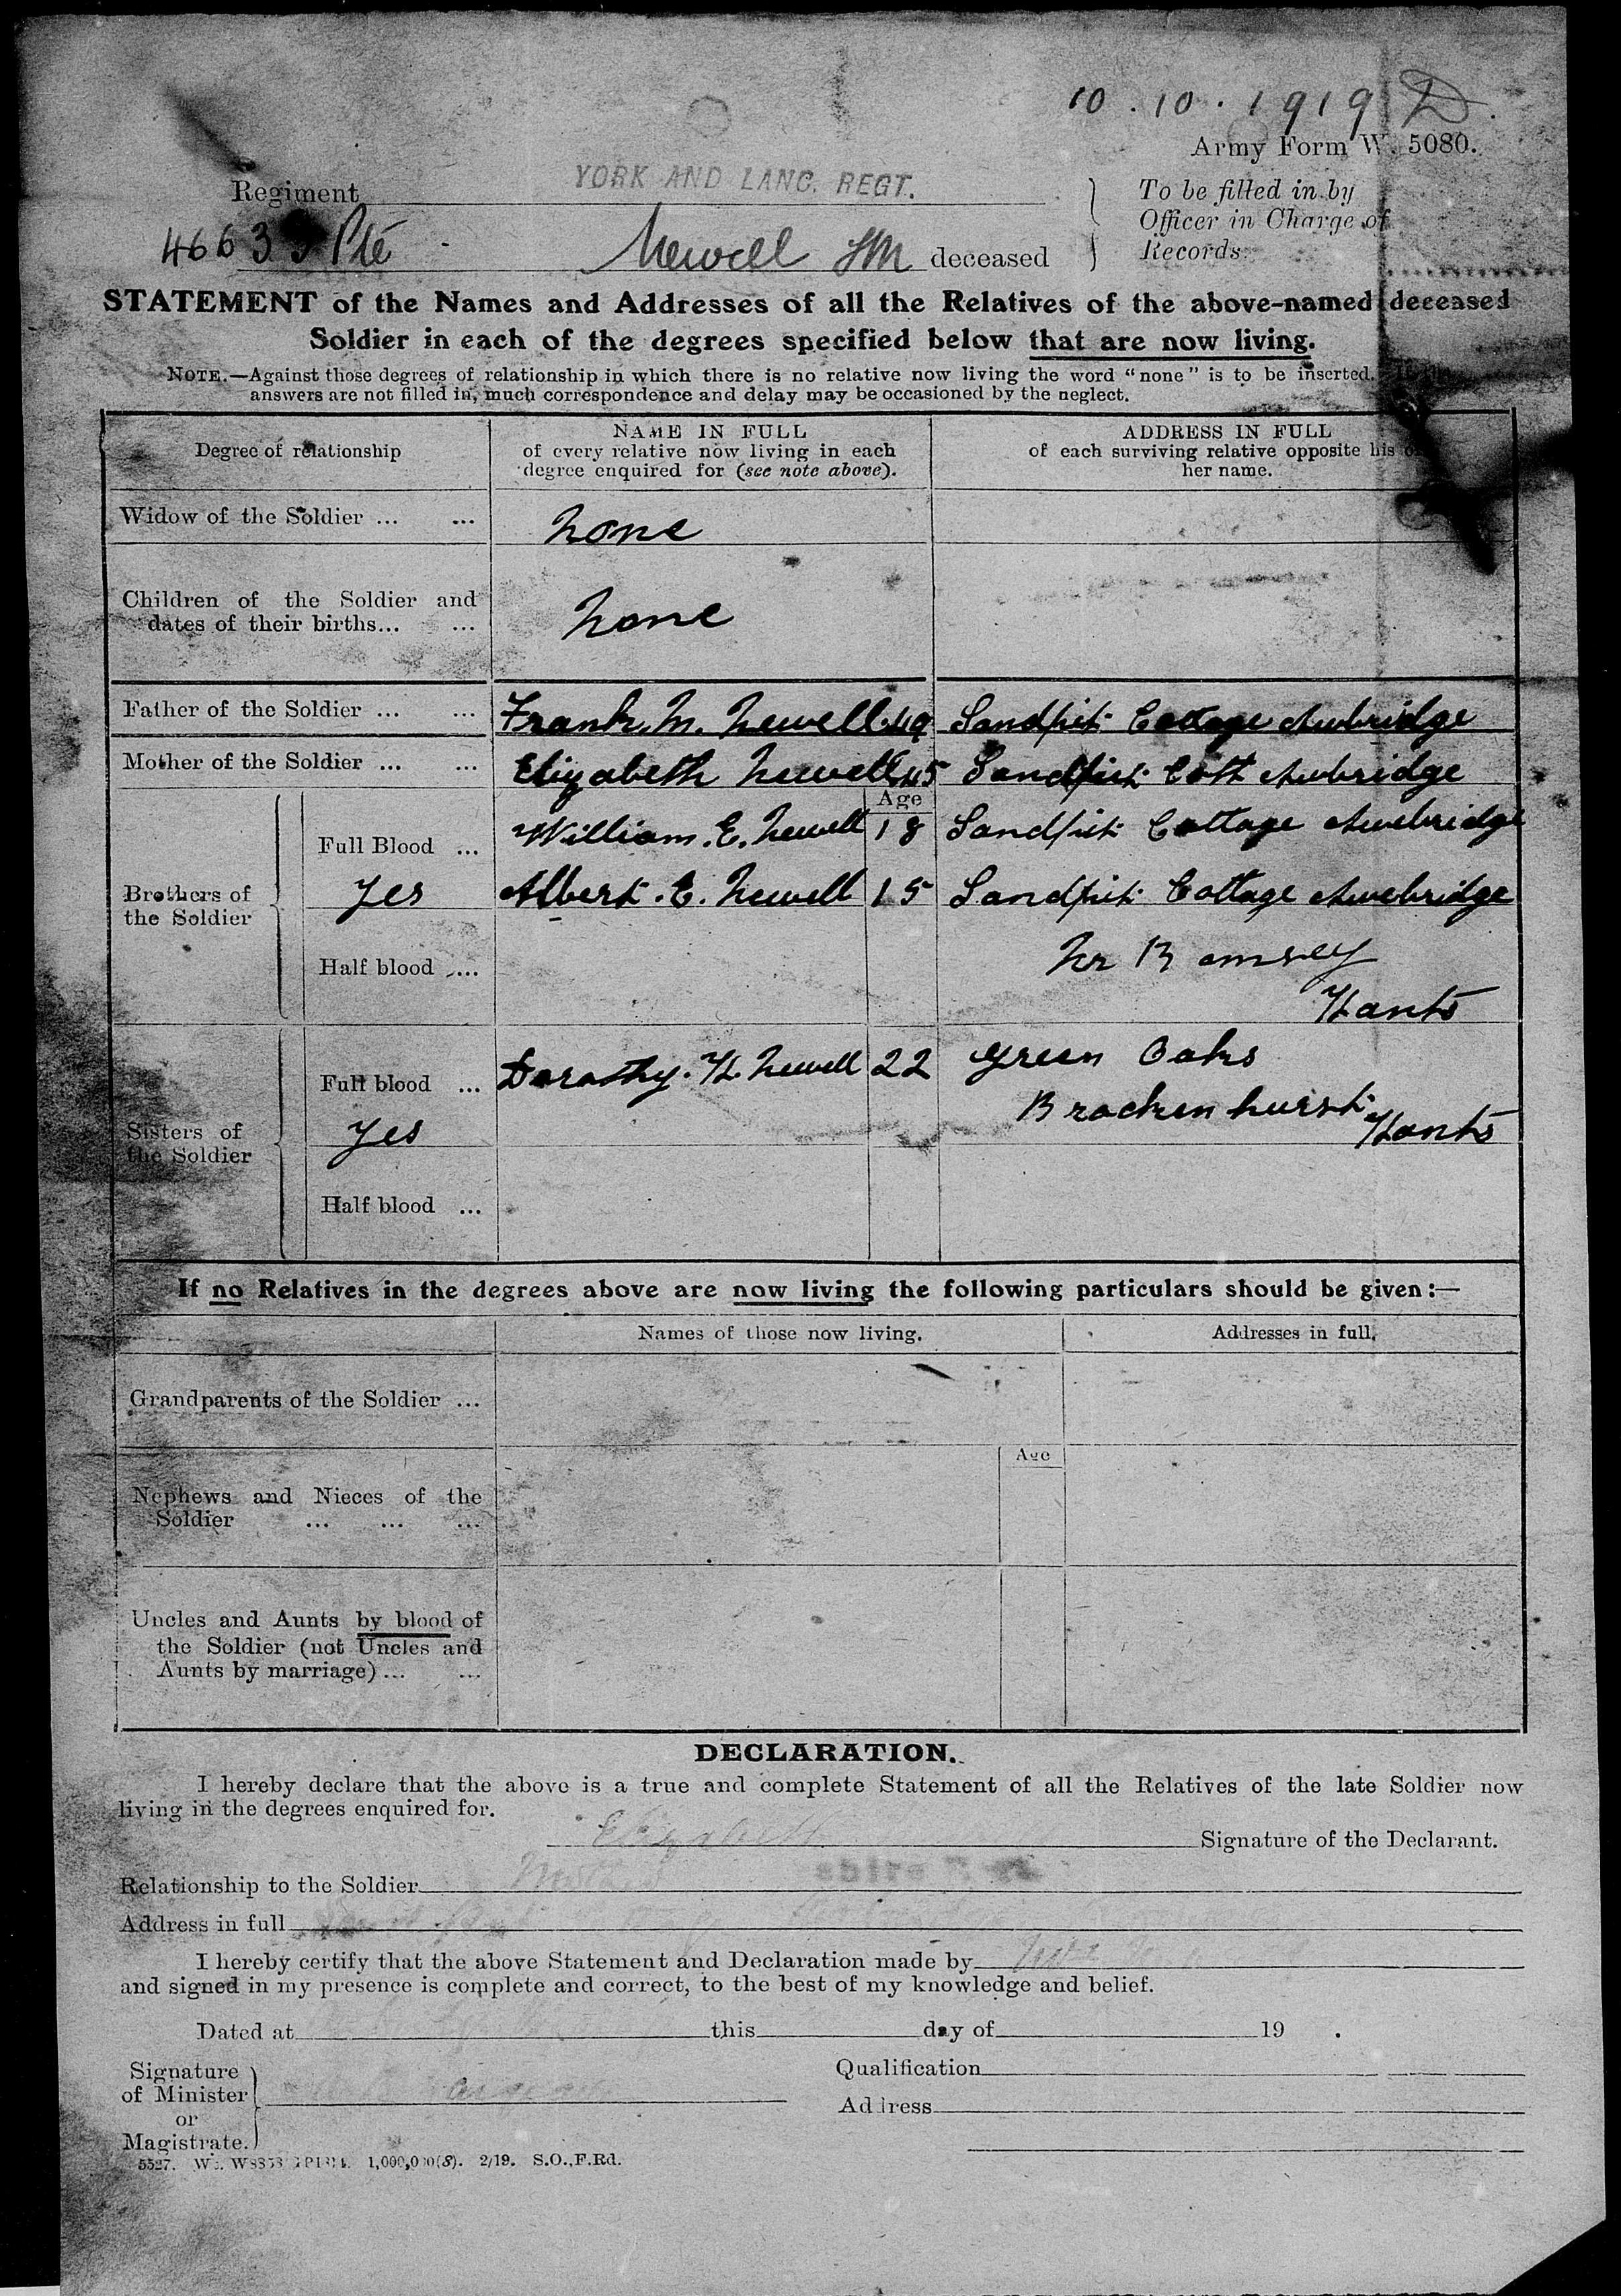 10 . 10 . 1919 D.
Army Form W. 5080.
Regiment YORK AND LANC. REGT.
To be filled in by
Officer in Charge of
Records.
Pte Newell deceased
STATEMENT of the Names and Addresses of all the Relatives of the above-named deceased
Soldier in each of the degrees specified below that are now living.
NOTE.—Against those degrees of relationship in which there is no relative now living the word "none" is to be inserted.
answers are not filled in, much correspondence and delay may be occasioned by the neglect.
Degree of relationship
NAME IN FULL
of every relative now living in each
degree enquired for (see note above).
ADDRESS IN FULL
of each surviving relative opposite his or
her name.
Widow of the Soldier ... ... none
Children of the Soldier and
dates of their births... ... none
Father of the Soldier ... ... Frank. M. Newell 49 Sandpit Cottage Awbridge
Mother of the Soldier ... ... Elizabeth Newell 45 Sandpit Cott Awbridge
Age
Brothers of
the Soldier
Full Blood ... William. E. Newell 18 Sandpit Cottage Awebridge
Yes Albert. E. Newell 15 Sandpit Cottage Awebridge
Half blood ... Nr Romsey
Hants
Sisters of
the Soldier
Full blood ... Dorathy. H. Newell 22 Green Oaks
Yes Brackenhurst Hants
Half blood ...
If no Relatives in the degrees above are now living the following particulars should be given:—
Names of those now living. Addresses in full.
Grandparents of the Soldier ...
Age
Nephews and Nieces of the
Soldier ... ... ...
Uncles and Aunts by blood of
the Soldier (not Uncles and
Aunts by marriage) ... ...
DECLARATION.
I hereby declare that the above is a true and complete Statement of all the Relatives of the late Soldier now
living in the degrees enquired for.
Elizabeth Signature of the Declarant.
Relationship to the Soldier Mother
Address in full
I hereby certify that the above Statement and Declaration made by
and signed in my presence is complete and correct, to the best of my knowledge and belief.
Dated at this day of 19 .
Signature
of Minister
or
Magistrate.
Qualification
Address
5527. 1,000,000(8). 2/19. S.O.,F.Rd.